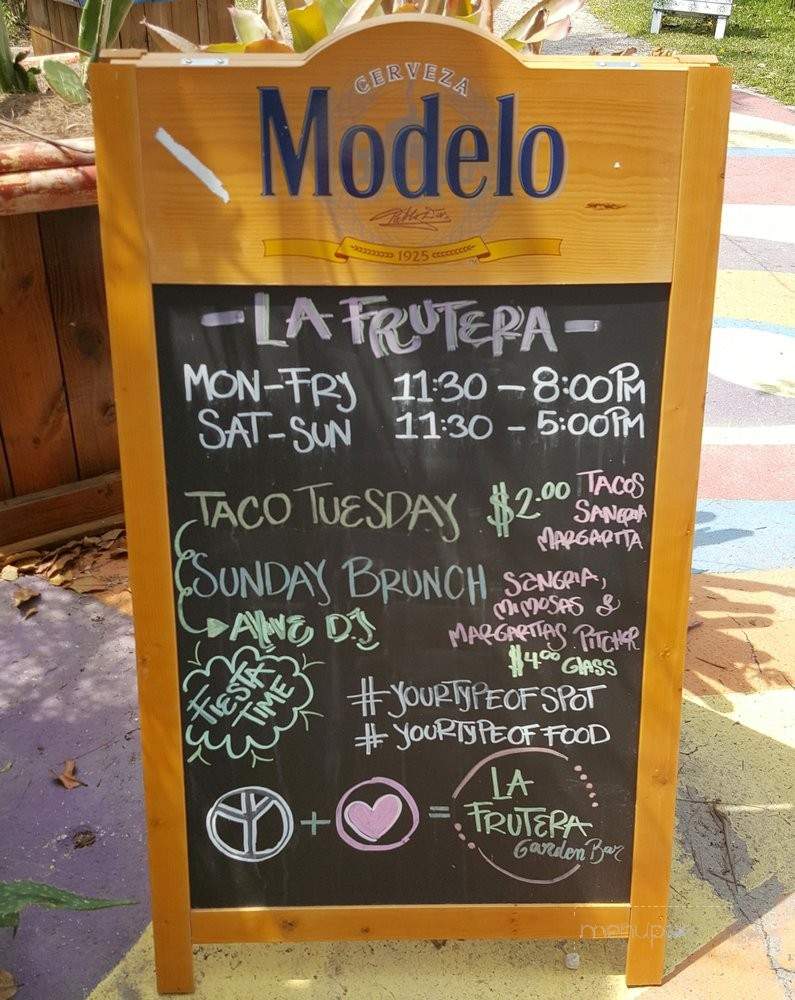 CERVEZA
Modelo
1925
- LA FRUTERA -
MON-FRY 11:30 - 8:00PM
SAT-SUN 11:30 - 5:00PM
TACO TUESDAY $2.00 TACOS
SANGRIA
MARGARITA
SUNDAY BRUNCH SANGRIA,
MIMOSAS &
MARGARITAS PITCHER
ALIVE DJ
$4.00 GLASS
FIESTA
TIME
#YOURTYPEOFSPOT
#YOURTYPEOFFOOD
+ =
LA
FRUTERA
Garden Bar